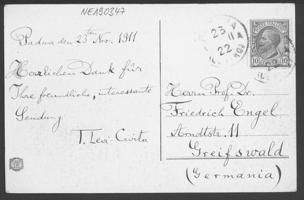 NEA90347
Padua den 23ten Nov. 1911
Herzlichen Dank für
Ihre freundliche, interessante
Sendung
T. Levi-Civita
23
11
22
10
10
Herrn Prof. Dr.
Friedrich Engel
Arndtstr. 11
Greifswald
(Germania)